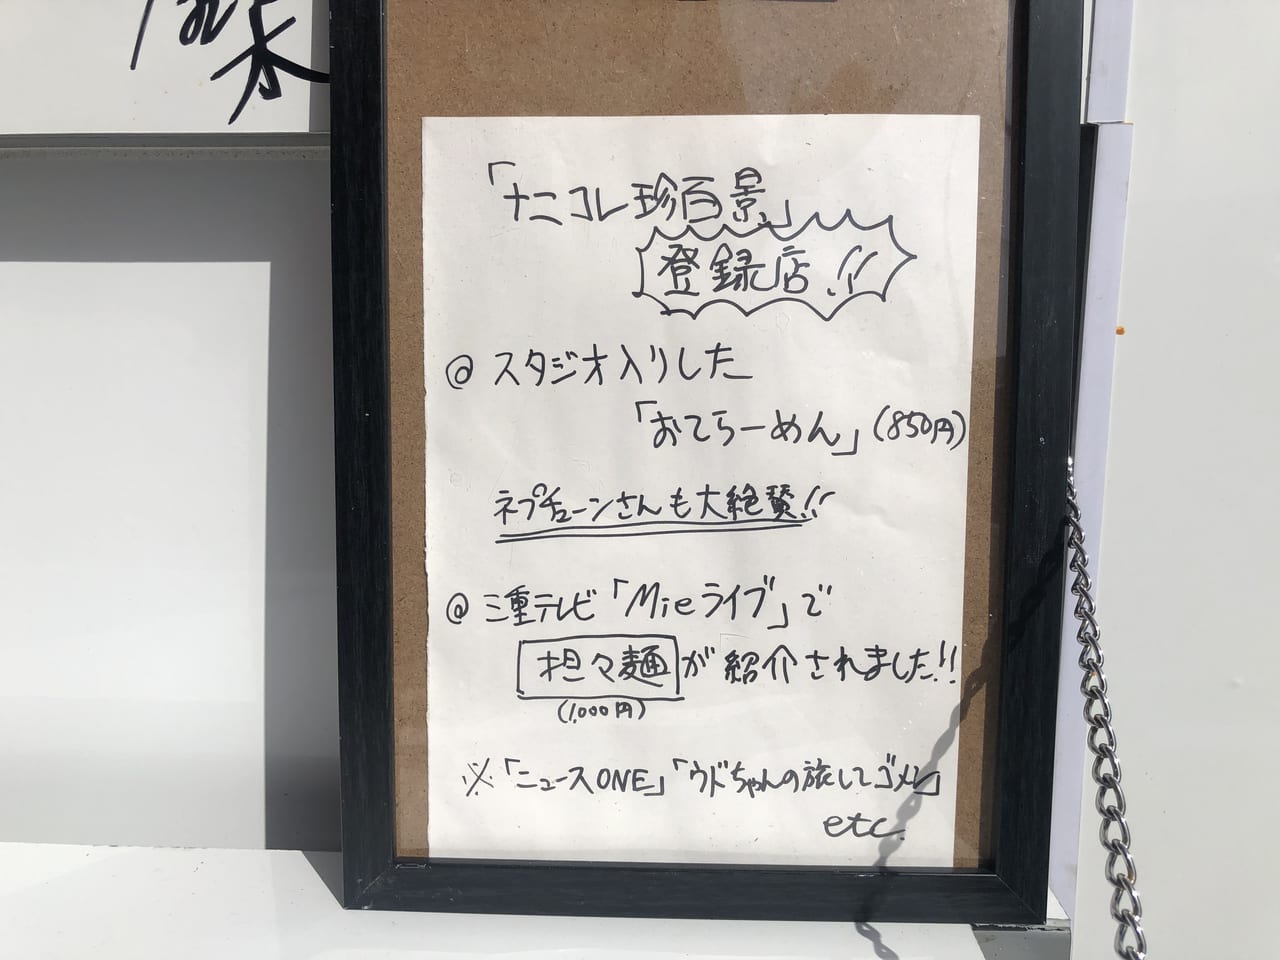 「ナニコレ珍百景」
登録店!!
@ スタジオ入りした
「おてらーめん」(850円)
ネプチューンさんも大絶賛!!
@ 三重テレビ「Mieライブ」で
担々麺が紹介されました!!
(1,000円)
※「ニュースONE」「ウドちゃんの旅してゴメン」
etc.